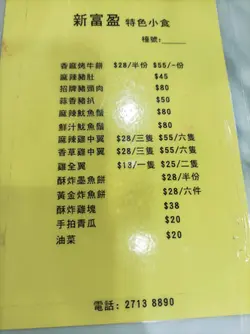 新富盈 特色小食
檯號:______
香麻烤牛餅 $28/半份 $55/-份
麻辣豬肚 $45
招牌豬頭肉 $80
蒜香豬扒 $50
麻辣魷魚鬚 $80
鮮汁魷魚鬚 $80
麻辣雞中翼 $28/三隻 $55/六隻
香草雞中翼 $28/三隻 $55/六隻
雞全翼 $13/一隻 $25/二隻
酥炸墨魚餅 $28/半份
黃金炸魚餅 $28/六件
酥炸雞塊 $38
手拍青瓜 $20
油菜 $20
電話: 2713 8890